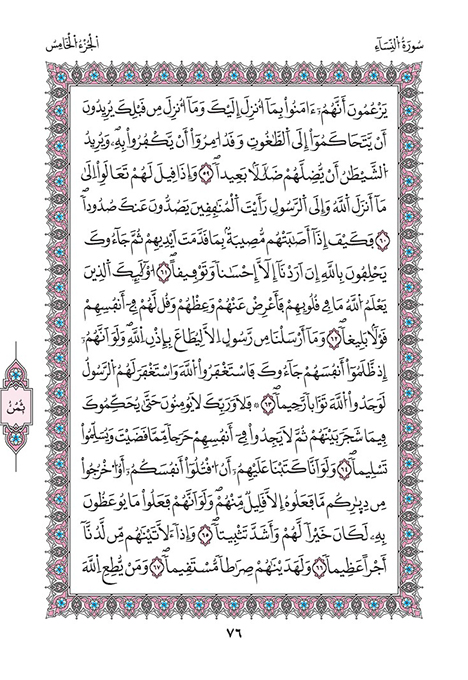 سُورَةُ النِّسَآءِ
الْجُزْءُ الْخَامِسُ
يَزْعُمُونَ أَنَّهُمُۥٓ ءَامَنُواْ بِمَآ أُنزِلَ إِلَيْكَ وَمَآ أُنزِلَ مِن قَبْلِكَ يُرِيدُونَ
أَنْ يَّتَحَاكَمُوٓاْ إِلَى اَلطَّٰغُوتِ وَقَدُ ا۟مِرُوٓاْ أَنْ يَّكْفُرُواْ بِهِۦۖ وَيُرِيدُ
اُلشَّيْطَٰنُ أَنْ يُّضِلَّهُمْ ضَلَٰلاَۢ بَعِيداٗۖ ٥٩ وَإِذَا قِيلَ لَهُمْ تَعَالَوِاْ اِلَىٰ
مَآ أَنزَلَ اَللَّهُ وَإِلَى اَلرَّسُولِ رَأَيْتَ اَلْمُنَٰفِقِينَ يَصُدُّونَ عَنكَ صُدُوداٗۖ
٦٠ فَكَيْفَ إِذَآ أَصَٰبَتْهُم مُّصِيبَةُۢ بِمَا قَدَّمَتَ اَيْدِيهِمْ ثُمَّ جَآءُوكَ
يَحْلِفُونَ بِاللَّهِ إِنَ اَرَدْنَآ إِلَّآ إِحْسَٰناٗ وَتَوْفِيقاًۖ ٦١ ا۟وْلَٰٓئِكَ اَلذِينَ
يَعْلَمُ اُللَّهُ مَا فِي قُلُوبِهِمْ فَأَعْرِضْ عَنْهُمْ وَعِظْهُمْ وَقُل لَّهُمْ فِيٓ أَنفُسِهِمْ
قَوْلاَۢ بَلِيغاٗۖ ٦٢ وَمَآ أَرْسَلْنَا مِن رَّسُولٍ اِلَّا لِيُطَاعَ بِإِذْنِ اِللَّهِۖ وَلَوَ اَنَّهُمُۥٓ
إِذ ظَّلَمُوٓاْ أَنفُسَهُمْ جَآءُوكَ فَاسْتَغْفَرُواْ اُللَّهَ وَاسْتَغْفَرَ لَهُمُ اُلرَّسُولُ
لَوَجَدُواْ اُللَّهَ تَوَّاباٗ رَّحِيماٗۖ ٦٣ ۞ فَلَا وَرَبِّكَ لَا يُومِنُونَ حَتَّىٰ يُحَكِّمُوكَ
فِيمَا شَجَرَ بَيْنَهُمْ ثُمَّ لَا يَجِدُواْ فِيٓ أَنفُسِهِمْ حَرَجاٗ مِّمَّا قَضَيْتَ وَيُسَلِّمُواْ
تَسْلِيماٗۖ ٦٤ وَلَوَ اَنَّا كَتَبْنَا عَلَيْهِمُۥٓ أَنُ ا۟قْتُلُوٓاْ أَنفُسَكُمُۥٓ أَوُ ا۟خْرُجُواْ
مِن دِيٰ۪رِكُم مَّا فَعَلُوهُ إِلَّا قَلِيلٞ مِّنْهُمْۖ وَلَوَ اَنَّهُمْ فَعَلُواْ مَا يُوعَظُونَ
بِهِۦ لَكَانَ خَيْراٗ لَّهُمْ وَأَشَدَّ تَثْبِيتاٗۖ ٦٥ وَإِذاٗ لَّأٓتَيْنَٰهُم مِّن لَّدُنَّآ
أَجْراً عَظِيماٗۖ ٦٦ وَلَهَدَيْنَٰهُمْ صِرَٰطاٗ مُّسْتَقِيماٗۖ ٦٧ وَمَنْ يُّطِعِ اِللَّهَ
ثُمُنُ
٧٦